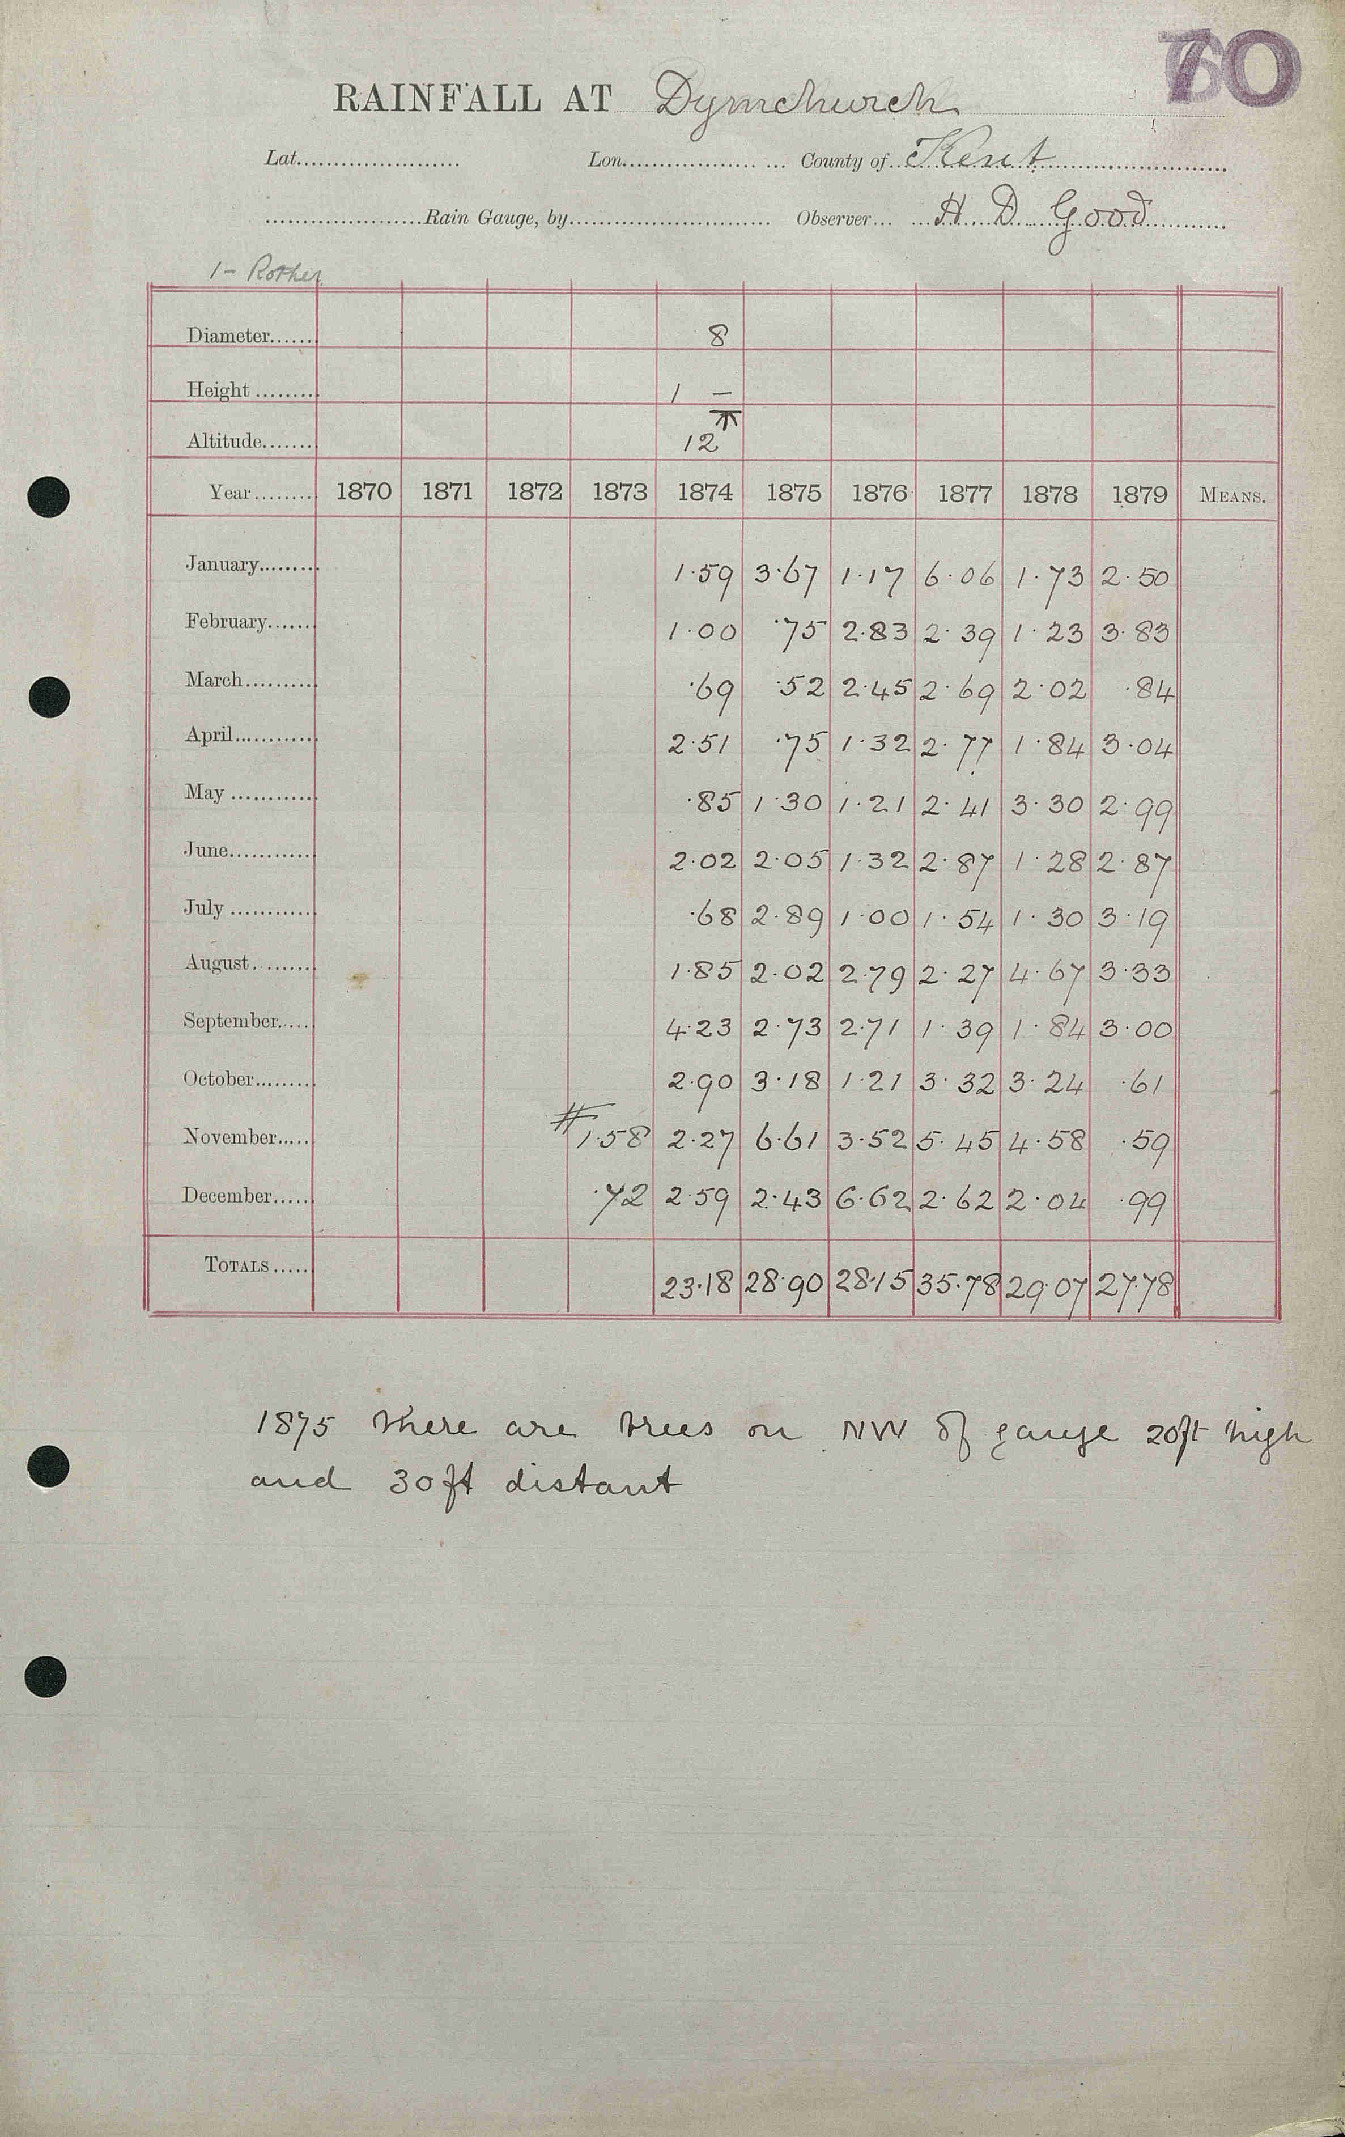 70
RAINFALL AT Dymchurch
Lat..................... Lon..................... County of Kent
Rain Gauge, by........................... Observer... H D Good
1 - Rother
Diameter...... 8
Height ......... 1 –
Altitude....... 12
Year ........ 1870 1871 1872 1873 1874 1875 1876 1877 1878 1879 MEANS.
January......... 1.59 3.67 1.17 6.06 1.73 2.50
February...... 1.00 .75 2.83 2.39 1.23 3.83
March.......... .69 .52 2.45 2.69 2.02 .84
April............ 2.51 .75 1.32 2.77 1.84 3.04
May ............ .85 1.30 1.21 2.41 3.30 2.99
June............ 2.02 2.05 1.32 2.87 1.28 2.87
July ............ .68 2.89 1.00 1.54 1.30 3.19
August......... 1.85 2.02 2.79 2.27 4.67 3.33
September..... 4.23 2.73 2.71 1.39 1.84 3.00
October......... 2.90 3.18 1.21 3.32 3.24 .61
November..... # 1.58 2.27 6.61 3.52 5.45 4.58 .59
December..... .72 2.59 2.43 6.62 2.62 2.04 .99
TOTALS ..... 23.18 28.90 28.15 35.78 29.07 27.78
1875 there are trees on NW of gauge 20ft high
and 30ft distant